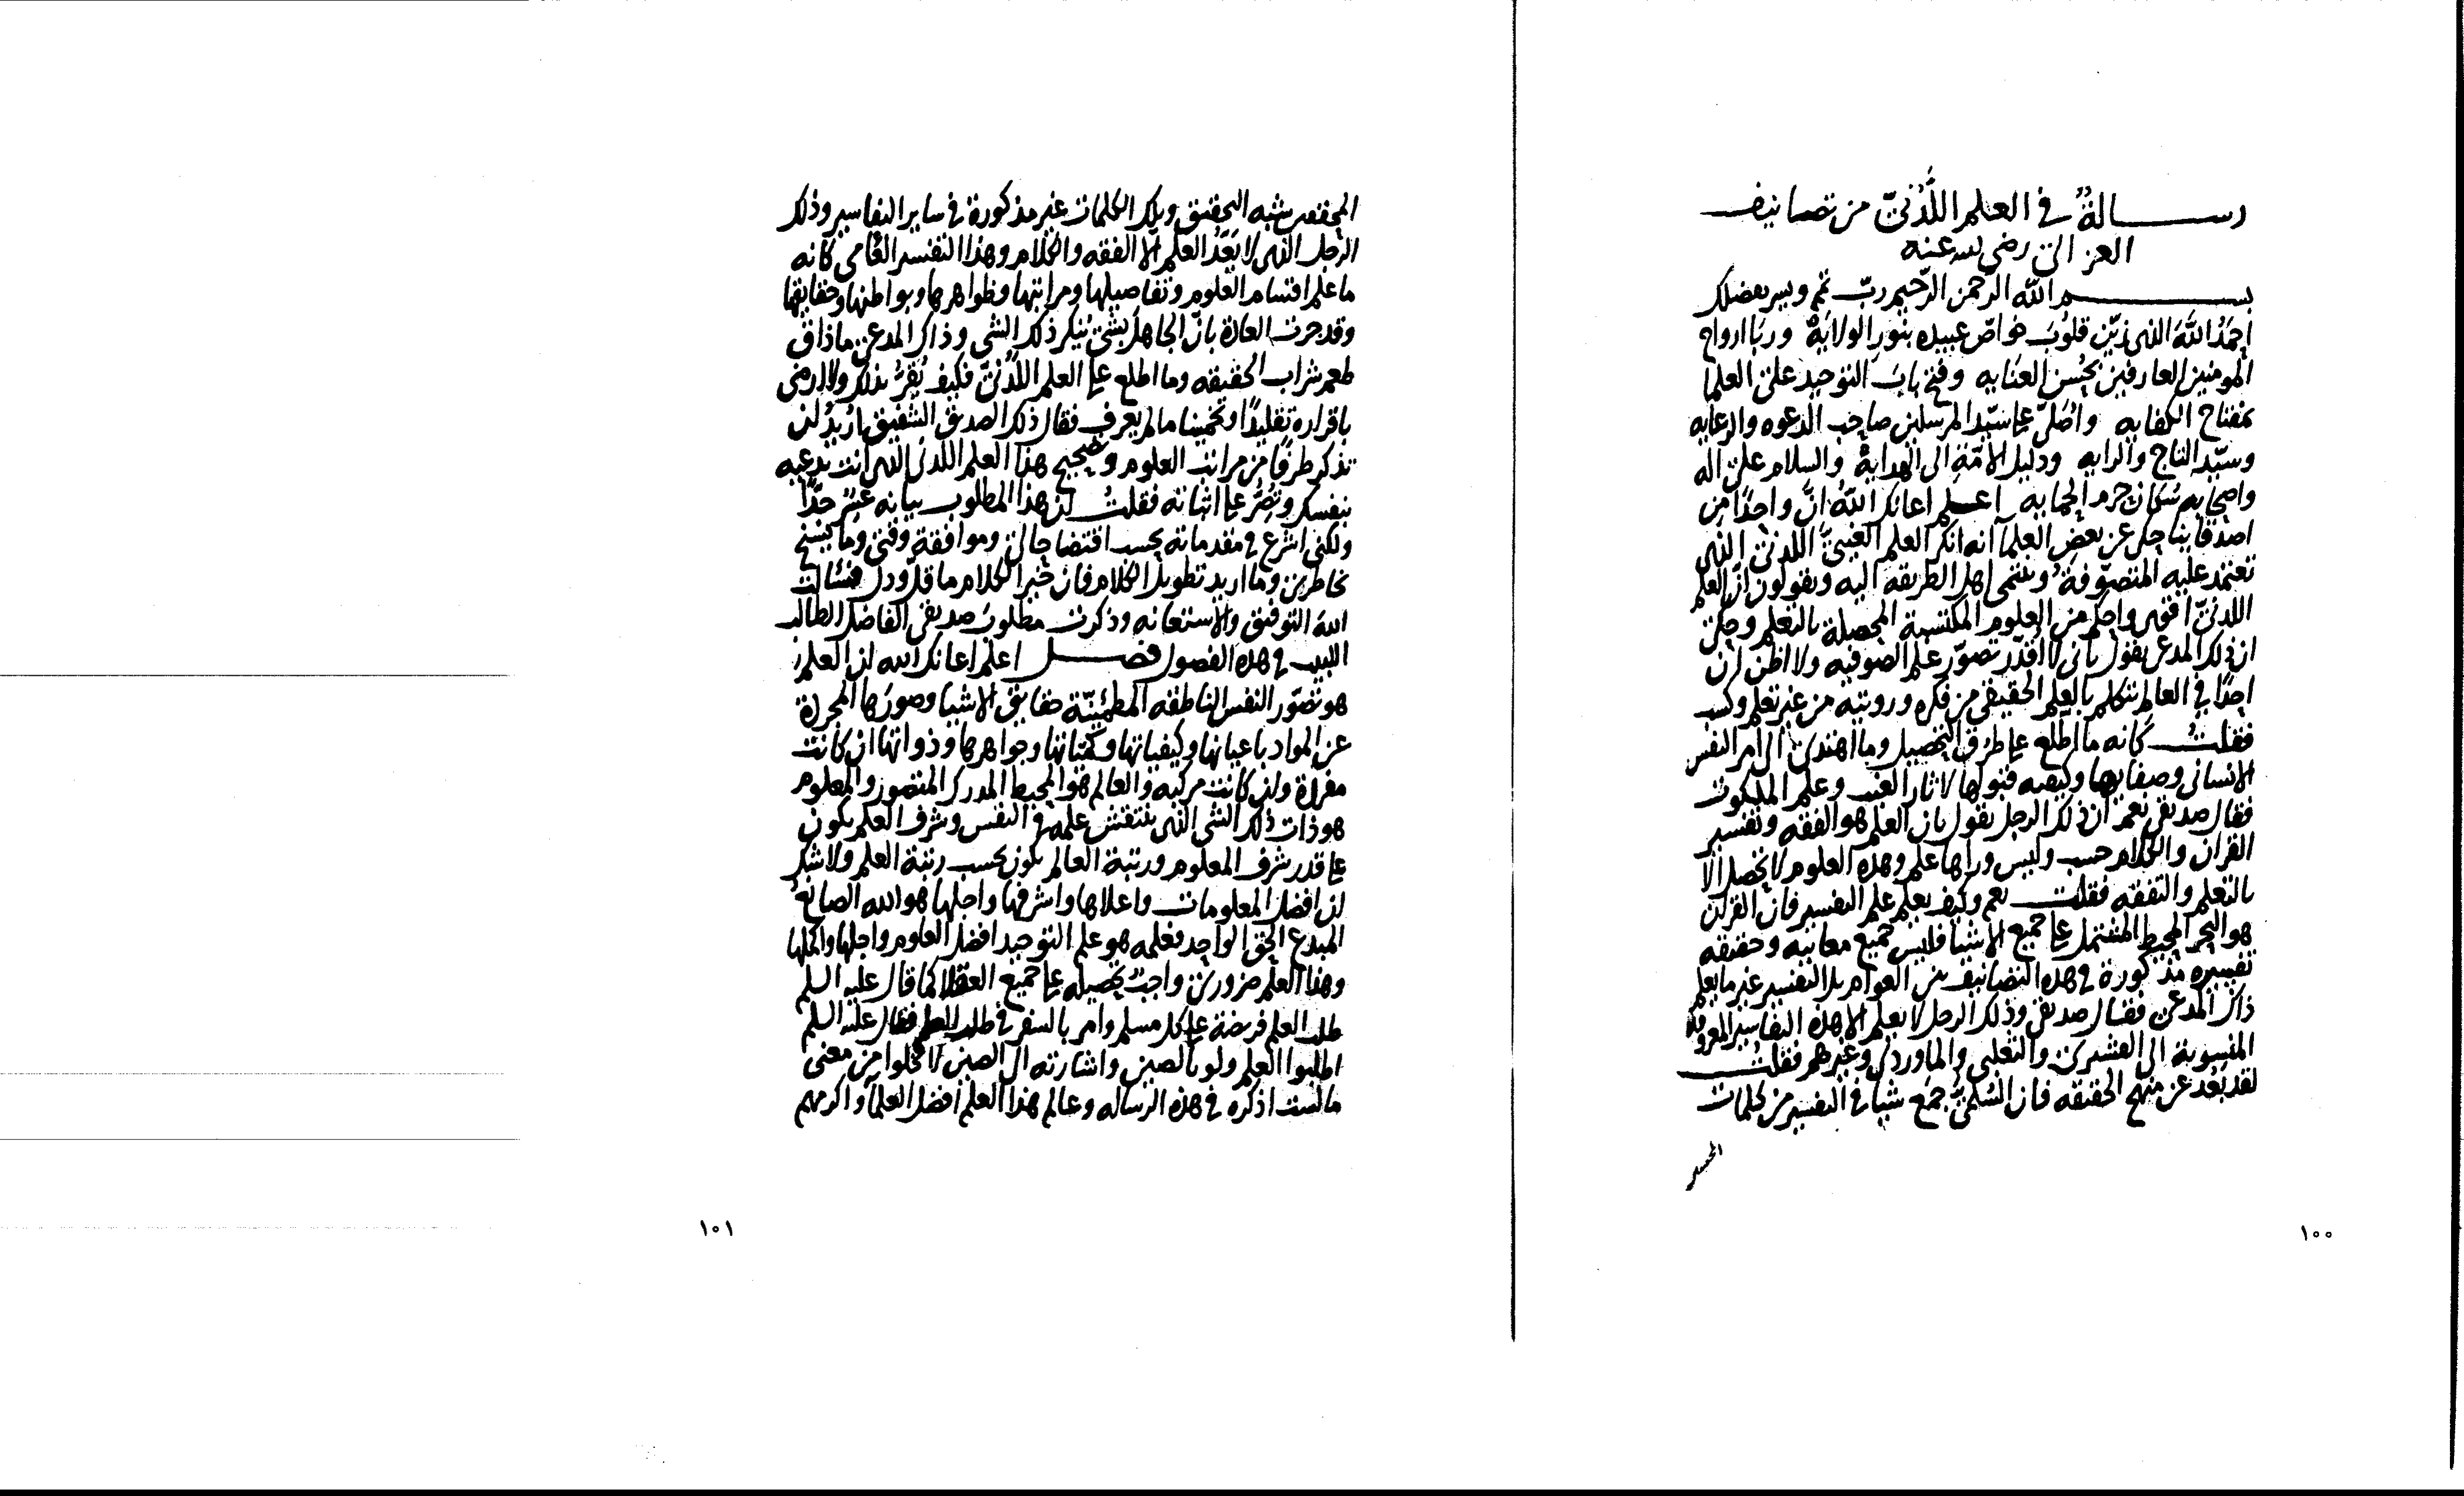 رسالةٌ في العلم اللَّدُنيّ من تصانيف
الغزالي رضي الله عنه
بسم الله الرّحمن الرّحيم ربّ تمم ويسر بفضلك
احمَدُ اللهَ الذي زيّن قلوبَ خواصّ عبيده بنور الولايةِ وربّا ارواح
المومنين العارفين بحُسن العنايه وفتح بابَ التوحيد على العلما
بمفتاح الكفايه واصُلّي على سيّد المرسلين صاحب الدعوه والرعايه
وسيّد التاج والرايه ودليل الامّة الى الهدايةِ والسلام على اله
واصحابه سُكان حرم الحمايه اعلم اعانك اللهُ انّ واحدًا من
اصدقاينا حكى عن بعض العلما انه انكر العلم الغيبيّ اللدنيّ الذي
تعتمد عليه المتصوّفةُ وينتمى اهل الطريقه اليه ويقولون انّ العلم
اللدنيّ اقوى واحكم من العلوم المكتسبة المحصلة بالتعلم وحكى
ان ذلك المدعى يقول بانى لا اقدّر تصوّر علم الصوفيه ولا اظن ان
احدًا في العالم يتكلم بالعلم الحقيقى من فكره ورويته من غير تعلم وكسب
فقلتُ كانه ما اطلع على طرق التحصيل وما اهتدى الى امر النفس
الانسانى وصفاتها وكيفيه قبولها لاثار الغيب وعلم الملكوت
فقال صديقى نعم ان ذلك الرجل يقول بان العلم هو الفقه وتفسير
القران والكلام حسب وليس وراها علم وهذه العلوم لا تحصل الا
بالتعلم والتفقه فقلت نعم وكيف يعلم علم التفسير فان القران
هو البحر المحيط المشتمل على جميع الاشيا فليس جميع معانيه وحقيقه
تفسيره مذكورة في هذه التصانيف بين العوام بل التفسير غير ما يعلم
ذاك المدعى فقال صديقى وذلك الرجل لا يعلم الا هذه التفاسير المعروفه
المنسوبة الى القشيرى والثعلبى والماوردى وغيرهم فقلتُ
لقد بَعُد عن منهج الحقيقه فان السُلميّ جمَع شيا في التفسير من كلمات
المحققين شبه التحقيق وتلك الكلمات غير مذكورة في ساير التفاسير وذلك
الرجل الذي لا يَعَدُّ العلم الّا الفقه والكلام وهذا التفسير العامى كانه
ما علم اقسام العلوم وتفاصيلها ومراتبها وظواهرها وبواطنها وحقايقها
وقد جرت العادة بانّ الجاهل بشيٍ يُنكر ذلك الشي وذاك المدعى ماذاق
طعم شراب الحقيقه وما اطلع على العلم اللَّدُنيّ فكيف يُقرُّ بذلك ولا ارضى
باقراره تقليدًا او تخمينا مالم يعرف فقال ذلك الصديق الشفيق اريد ان
تذكر طرفًا من مراتب العلوم وتصحيح هذا العلم اللدنى الذي انت تدعيه
بنفسك وتُصُرُّ على اثباته فقلتُ ان هذا المطلوب بيانه عسِرٌ جدًّا
ولكنى اشرع في مقدماته بحسب اقتضا حالى وموافقة وقتى وما يَسنح
بخاطرى وما اريد تطويل الكلام فان خير الكلام ما قلّ ودل فسالت
اللهَ التوفيق والاستعانه وذكرت مطلوب صديقى الفاضل الطالب
اللبيب في هذه الفصول فصل اعلم اعانك الله ان العلم
هو تصوّر النفس الناطقه المطمئنّة حقايق الاشيا وصورَها المجردة
عن المواد باعيانها وكيفياتها وكمّياتها وجواهرها وذواتها ان كانت
مفردة وان كانت مركبه والعالم هو المحيط المدرك المتصور والمعلوم
هو ذات ذلك الشى الذي ينتقش علمه في النفس وشرف العلم يكون
على قدر شرف المعلوم ورتبة العالم يكون بحسب رتبة العلم ولا شك
ان افضل المعلومات واعلاها واشرفها واجلها هو الله الصانعُ
المبدع الحق الواحد فعلمه هو علم التوحيد افضل العلوم واجلها واكملها
وهذا العلم ضرورىّ واجبٌ تحصيله على جميع العقلا كما قال عليه السلم
طلب العلم فريضة على كل مسلم وامر بالسفر في طلب العلم فقال عليه السلم
اطلبوا العلم ولو بالصين واشارته الى الصين لا تخلوا من معنى
ما لست اذكره في هذه الرساله وعالم هذا العلم افضل العلما واكرمهم
١٠١
١٠٠